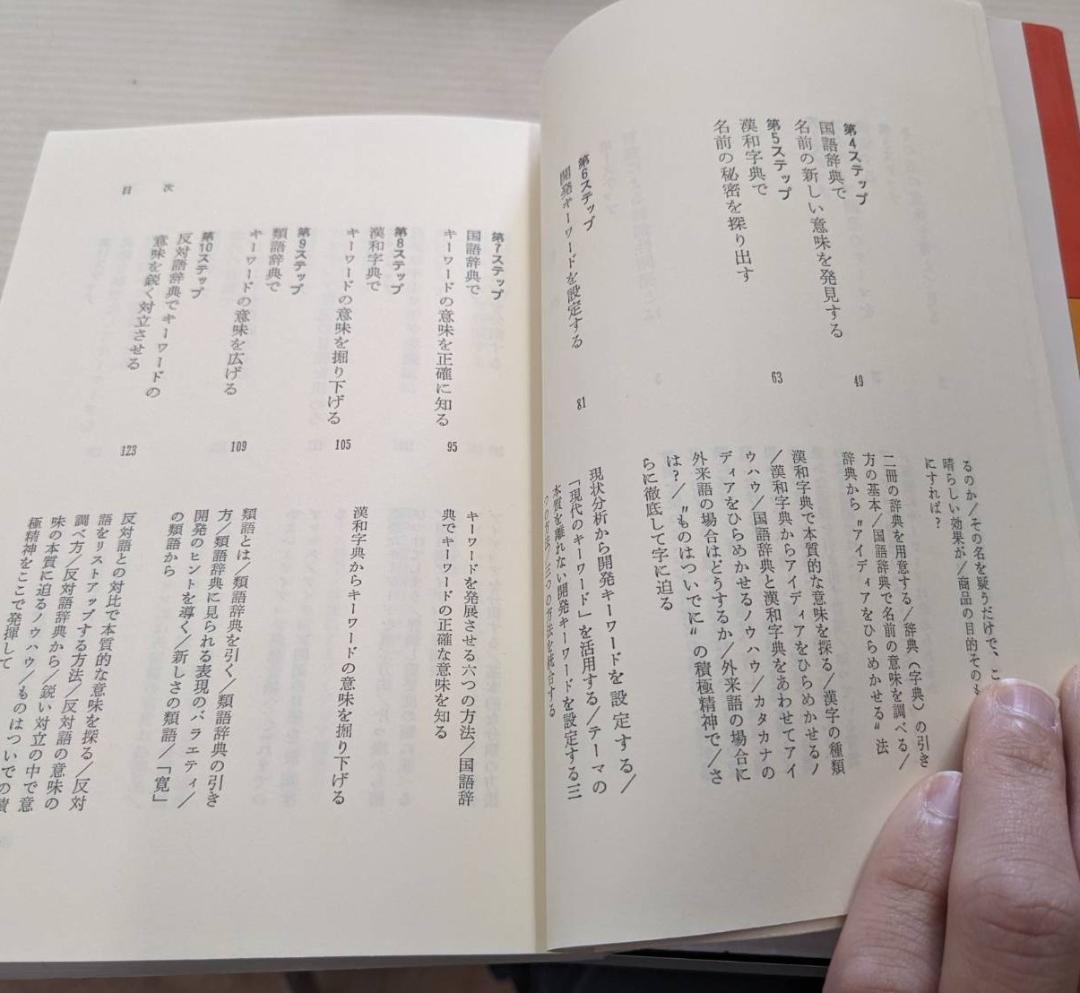 第4ステップ
国語辞典で
名前の新しい意味を発見する
49
るのか/その名を疑うだけで、こ
晴らしい効果が/商品の目的そのも
にすれば?
二冊の辞典を用意する/辞典(字典)の引き
方の基本/国語辞典で名前の意味を調べる/
辞典から〝アイディアをひらめかせる〟法
第5ステップ
漢和字典で
名前の秘密を探り出す
63
漢和字典で本質的な意味を探る/漢字の種類
/漢和字典からアイディアをひらめかせるノ
ウハウ/国語辞典と漢和字典をあわせてアイ
ディアをひらめかせるノウハウ/カタカナの
外来語の場合はどうするか/外来語の場合に
は?/〝ものはついでに〟の積極精神で/さ
らに徹底して字に迫る
第6ステップ
開発キーワードを設定する
81
現状分析から開発キーワードを設定する/
「現代のキーワード」を活用する/テーマの
本質を離れない開発キーワードを設定する三
つの方法/三つの方法を統合する
第7ステップ
国語辞典で
キーワードの意味を正確に知る
95
キーワードを発展させる六つの方法/国語辞
典でキーワードの正確な意味を知る
第8ステップ
漢和字典で
キーワードの意味を掘り下げる
105
漢和字典からキーワードの意味を掘り下げる
第9ステップ
類語辞典で
キーワードの意味を広げる
109
類語とは/類語辞典を引く/類語辞典の引き
方/類語辞典に見られる表現のバラエティ/
開発のヒントを導く/新しさの類語/「寛」
の類語から
第10ステップ
反対語辞典でキーワードの
意味を鋭く対立させる
123
反対語との対比で本質的な意味を探る/反対
語をリストアップする方法/反対語の意味の
調べ方/反対語辞典から/鋭い対立の中で意
味の本質に迫るノウハウ/ものはついでの積
極精神をここで発揮して
目次